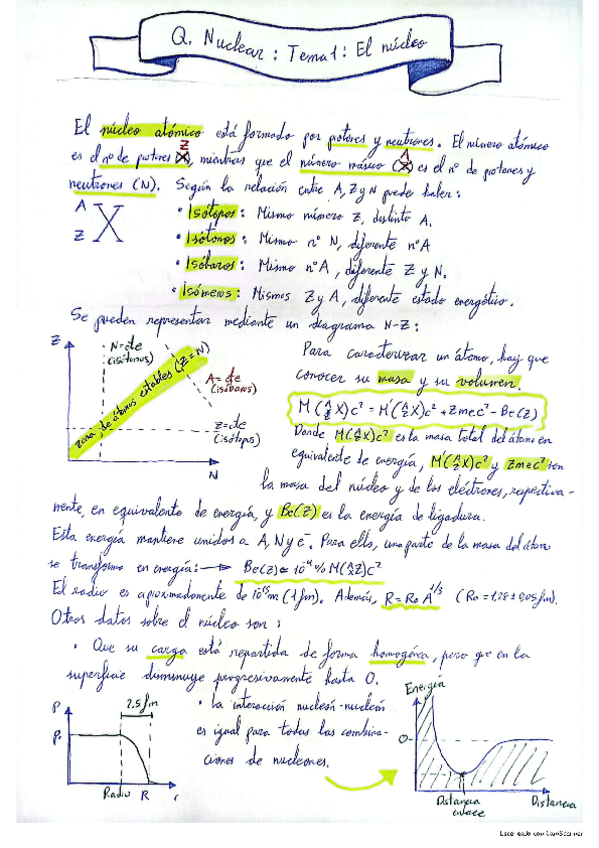 Q. Nuclear : Tema 1 : El núcleo
El núcleo atómico está formado por protones y neutrones. El número atómico
Z
A
es el nº de protones (X), mientras que el número másico (X) es el nº de protones y
neutrones (N). Según la relación entre A, Z y N puede haber :
A
Z
X
• Isótopos : Mismo número Z, distinto A.
• Isótonos : Mismo nº N, diferente nº A
• Isóbaros : Mismo nº A, diferente Z y N.
• Isómeros : Mismos Z y A, diferente estado energético.
Se pueden representar mediante un diagrama N-Z :
Z
N = cte
(isótonos)
zona de átomos estables (Z = N)
A = cte
(isóbaros)
Z = cte
(isótopos)
N
Para caracterizar un átomo, hay que
conocer su masa y su volumen.
M(A/Z X)c² = M'(A/Z X)c² + Z mec² - Be(Z)
Donde M(A/Z X)c² es la masa total del átomo en
equivalente de energía, M'(A/Z X)c² y Z mec² son
la masa del núcleo y de los electrones, respectiva-
mente, en equivalente de energía, y Be(Z) es la energía de ligadura.
Esta energía mantiene unidos a A, N y e⁻. Para ello, una parte de la masa del átomo
se transforma en energía : → Be(Z) ≈ 10⁻⁴ % M(A/Z)c²
El radio es aproximadamente de 10⁻¹⁵ m (1 fm). Además, R = R₀ A^1/3 (R₀ = 1,28 ± 0,05 fm).
Otros datos sobre el núcleo son :
• Que su carga está repartida de forma homogénea, pero que en la
superficie disminuye progresivamente hasta 0.
ρ
ρ₀
2.5 fm
Radio R
r
• la interacción nucleón-nucleón
es igual para todas las combina-
ciones de nucleones.
Energía
0
Distancia
enlace
Distancia
Escaneado con CamScanner